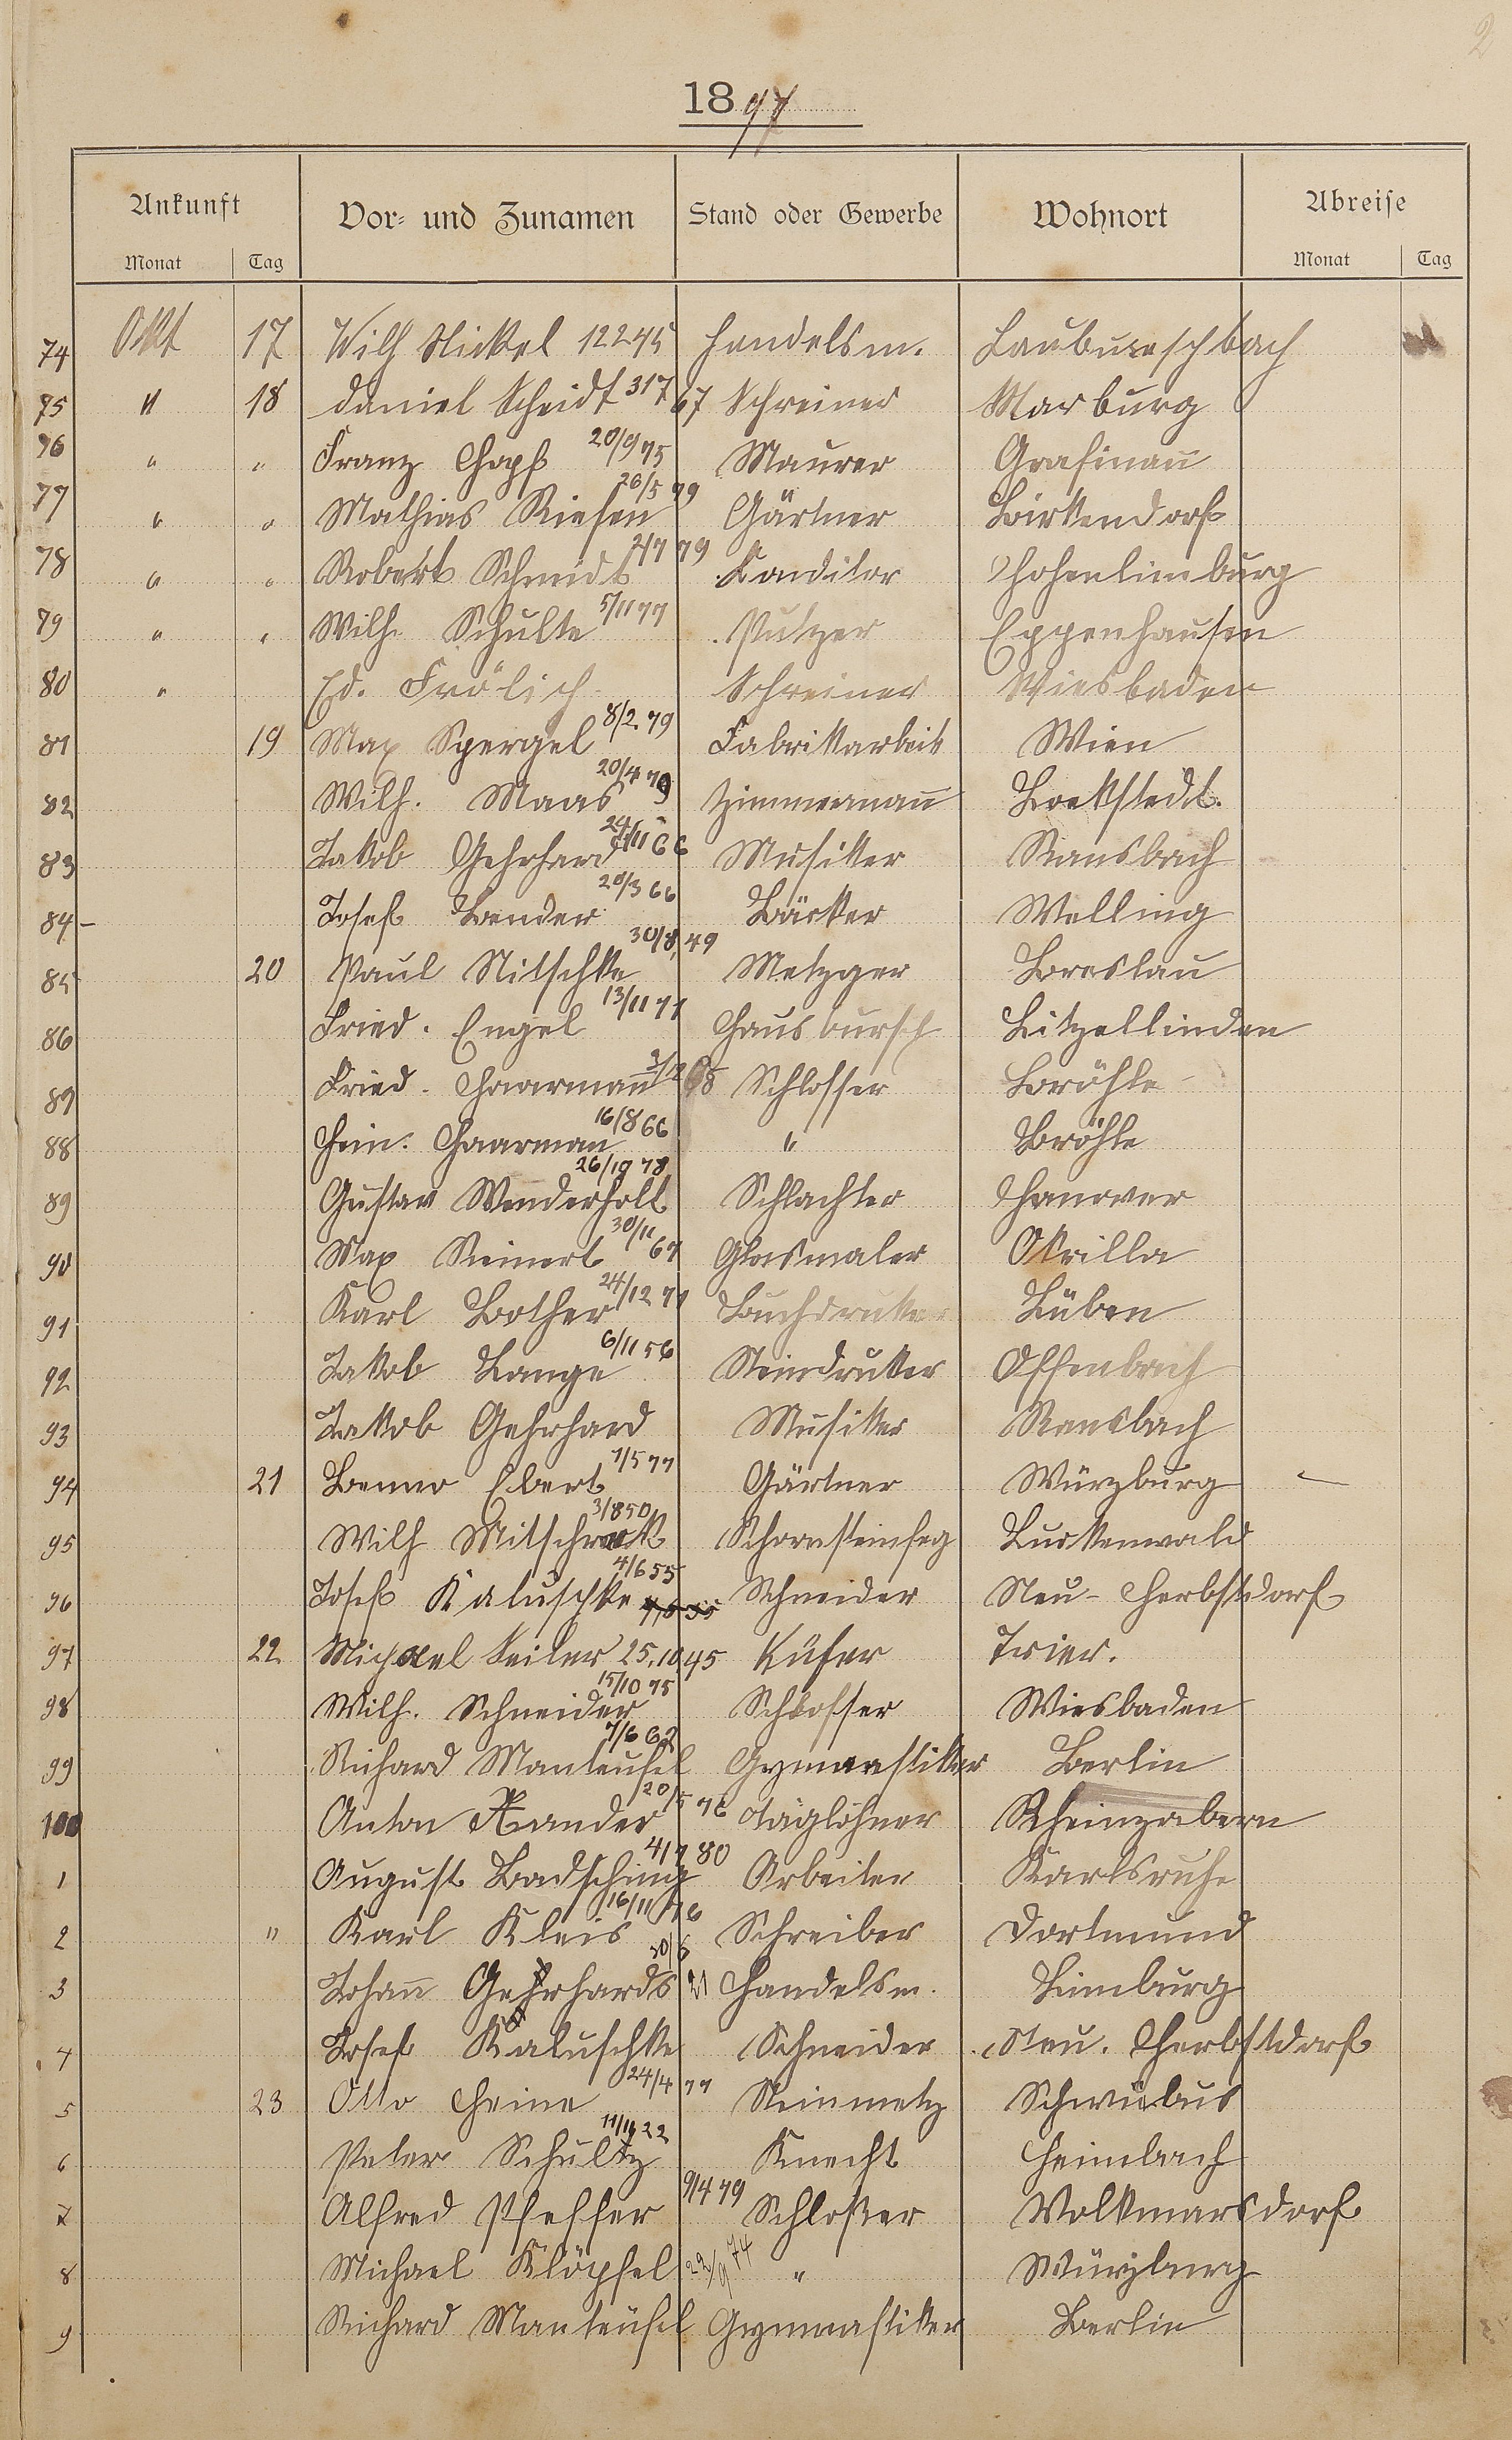 2
1897
Ankunft Vor- und Zunamen Stand oder Gewerbe Wohnort Abreise
Monat Tag Monat Tag
74 Okt 17 Wilh Nickel 12245 Handelsm. Laubuseschbach
75 " 18 Daniel Scheidt 317 67 Schreiner Marburg
76 " " Franz Hopf 20/9 75 Maurer Grafinau
77 " " Mathias Riesen 26/5 79 Gärtner Birkendorf
78 " " Robert Schmidt 79 Konditor Hohenlimburg
79 " " Wilh. Schulte 5/11 77 Putzer Eppenhausen
80 " Ed. Frölich Schreiner Wiesbaden
81 19 Max Spergel 8/2 79 Fabrikarbeit Wien
82 Wilh. Maas 20/4 79 Zimmermann Lockstedt.
83 Jakob Gehrhard 24/11 66 Musiker Ransbach
84 - Josef Bender 20/3 66 Bäcker Welling
85 20 Paul Nitschke 30/8 49 Metzger Breslau
86 Fried. Engel 13/11 77 Hausbursch Lützellinden
87 Fried. Haarmann Schlosser Bröhle
88 Hein. Haarman 16/8 66 " Bröhle
89 Gustav Wenderholt 26/10 78 Schlachter Hanover
90 Max Reinert 30/11 67 Glasmaler Okrilla
91 Karl Bother 24/12 71 Buchdruker Lüben
92 Jakob Lange 6/11 56 Steindruker Offenbach
93 Jakob Gehrhard Musiker Ransbach
94 21 Benno Ebert 1/5 77 Gärtner Würzburg
95 Wilh Mitschack 3/8 50 Schornsteinfeg Luckenwald
96 Josef Kaluschke 4/6 55 Schneider Neu-Herbstdorf
97 22 Michael Seiler 25.10.45 Küfer Trier.
98 Wilh. Schneider 15/10 75 Schlosser Wiesbaden
99 Richard Manteufel 7/6 62 Gymnastiker Berlin
100 Anton Xander 20/5 76 Taglöhner Rheinzabern
1 August Badsching 80 Arbeiter Karlsruhe
2 " Karl Kleis 16/11 76 Schreiber Dortmund
3 Johann Gehrhards 30/6 21 Handelsm. Limburg
4 Josef Kaluschke Schneider Neu. Herbstdorf
5 23 Otto Heine 24/4 77 Steinmetz Schwiebus
6 Peter Schultz 11/11 22 Knecht Heimbach
7 Alfred Pfeffer 9/4 79 Schloßer Volkmarsdorf
8 Michael Klöpfel 22/9 74 " Würzburg
9 Richard Manteufel Gymnastiker Berlin